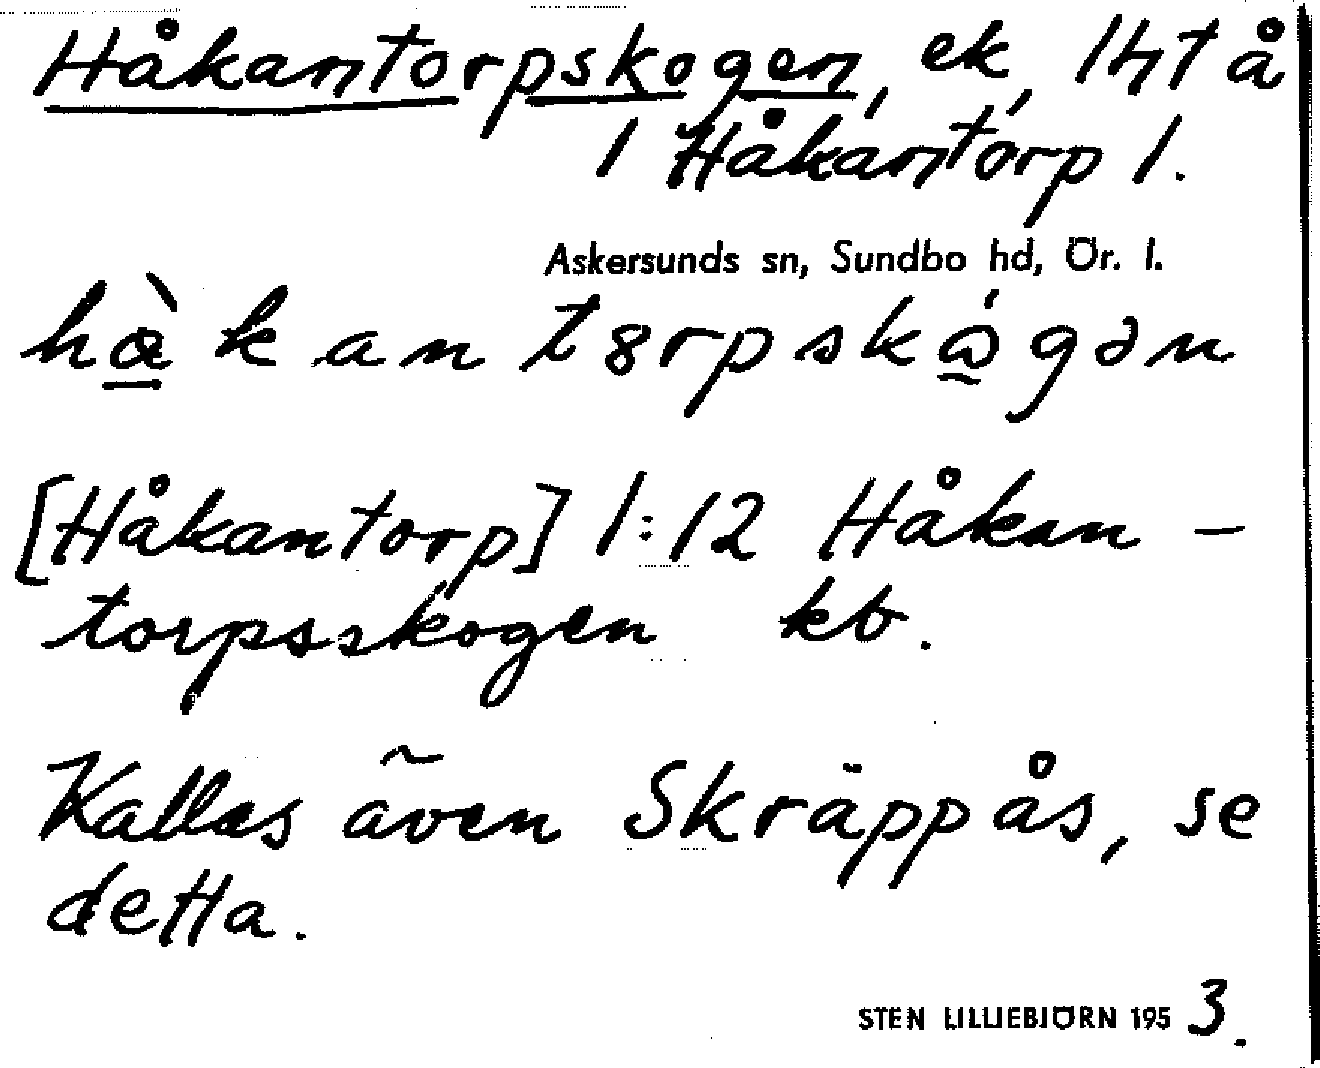 Håkantorpskogen, ek, lht å
1 Håkantorp 1.
Askersunds sn, Sundbo hd, Ör. l.
hå̀kantȣrpskǫ́gən
[Håkantorp] 1:12 Håkan-
torpsskogen kb.
Kallas även Skräppås, se
detta.
STEN LILLIEBJÖRN 1953.